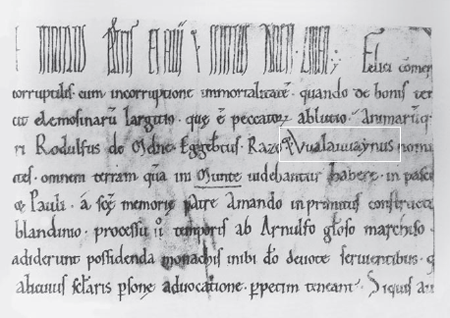 Felici cōmer
corruptibilis cum incorruptione inmortalitatē. quando de bonis ter
elemosinarū largitio. que ē peccatorꝝ ablutio. Animarūq;
ri Rodulfus de Odne. Eggebtus. Razo. Vualauuaynus nomi
omnem terram quā in Gunte uidebantur habere. in pasc
& Pauli. á scę memorię patre Amando inprimitus constructe
blandinio. processu ū temporis ab Arnulfo glōso marchiso
adiderunt possidenda monachis inibi dō deuote seruientibus.
alicuius sclaris psone aduocatione. ppetim teneant. Siquis au